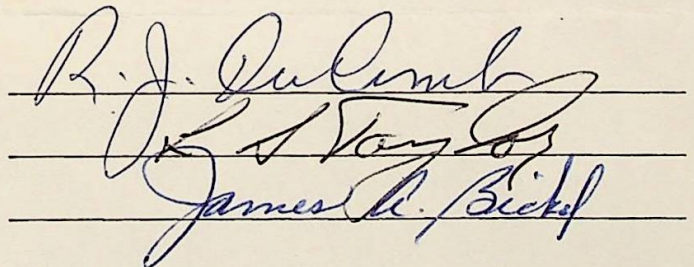 R. J. DuComb
R S Taylor
James A. Bickel